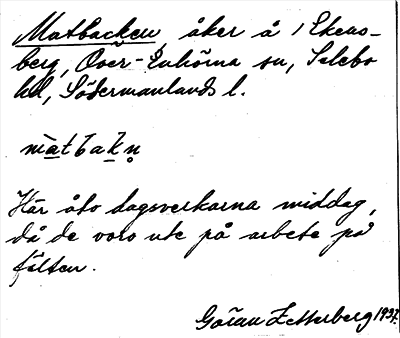 Matbacken åker å 1 Ekens-
berg, Över-Enhörna sn, Selebo
hd, Södermanlands l.
màtbakn̥
Här åto dagsverkarna middag,
då de voro ute på arbete på
fälten.
Göran Zetterberg 1937.